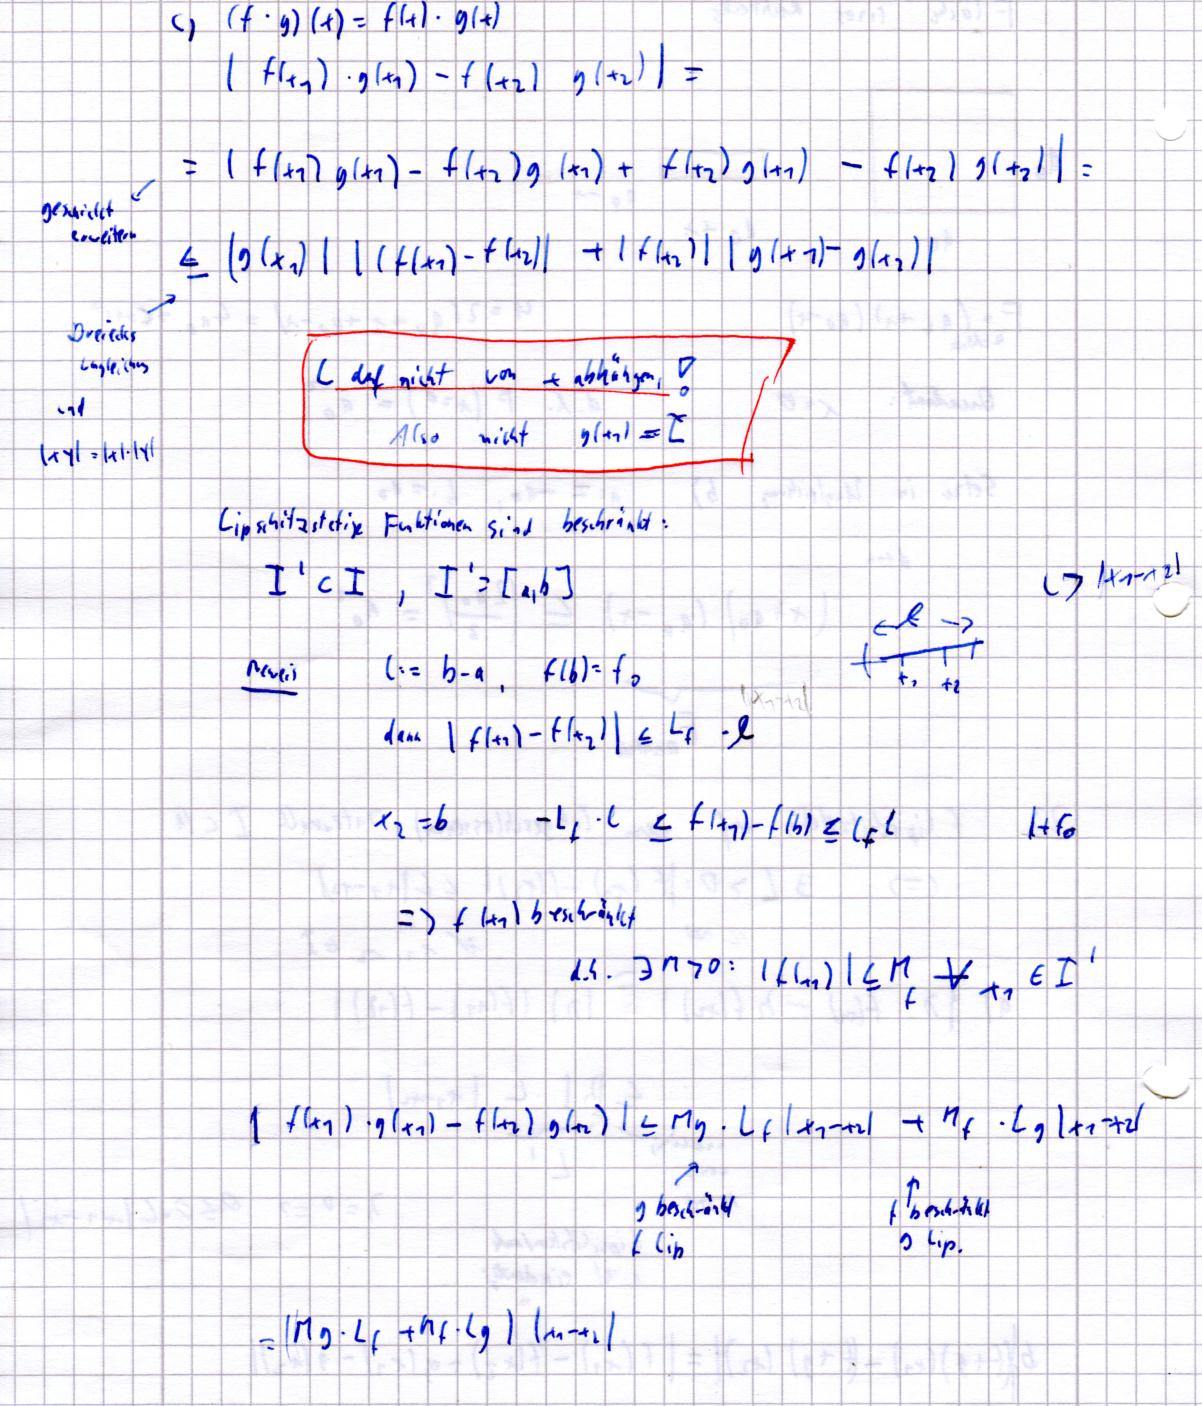 c) (f · g)(x) = f(x) · g(x)
| f(x₁) · g(x₁) – f(x₂) g(x₂) | =
= | f(x₁) g(x₁) – f(x₂) g(x₁) + f(x₂) g(x₁) – f(x₂) g(x₂) | =
geschickt
erweitern
≤ |g(x₁)| |(f(x₁) – f(x₂)| + |f(x₂)| |g(x₁) – g(x₂)|
Dreiecks
ungleichung
und
|xy| = |x|·|y|
L darf nicht von x abhängen, !
Also nicht g(x₁) = L
Lipschitzstetige Funktionen sind beschränkt:
I' ⊂ I , I' = [a,b]
↪ |x₁–x₂|
← l →
x₁ x₂
Beweis l := b–a, f(b) = f₀
|x₁–x₂|
dann | f(x₁) – f(x₂)| ≤ L_f · l
x₂ = b –L_f · l ≤ f(x₁) – f(b) ≤ L_f l |+f₀
=> f(x₁) beschränkt
d.h. ∃ M > 0 : |f(x₁)| ≤ M_f ∀ x₁ ∈ I'
| f(x₁) · g(x₁) – f(x₂) g(x₂) | ≤ Mg · L_f |x₁–x₂| + M_f · Lg |x₁–x₂|
g beschränkt
f Lip
f beschränkt
g Lip.
= (Mg · L_f + M_f · Lg) |x₁–x₂|